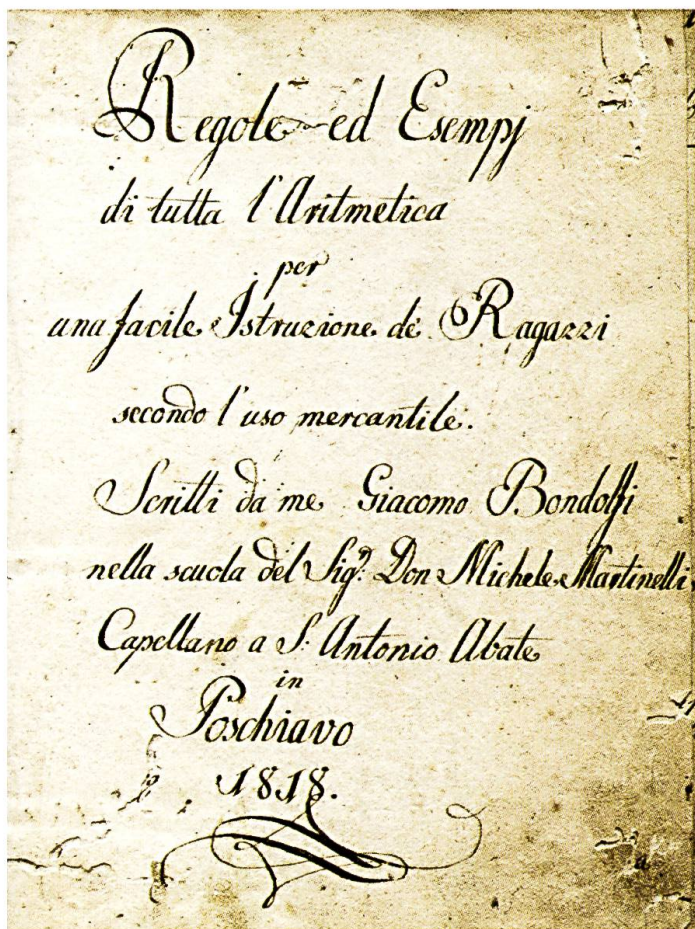 Regole ed Esempj
di tutta l'Aritmetica
per
una facile Istruzione de' Ragazzi
secondo l'uso mercantile.
Scritti da me Giacomo Bondolfi
nella scuola del Sig.r Don Michele Martinelli
Capellano a S. Antonio Abate
in
Poschiavo
1818.